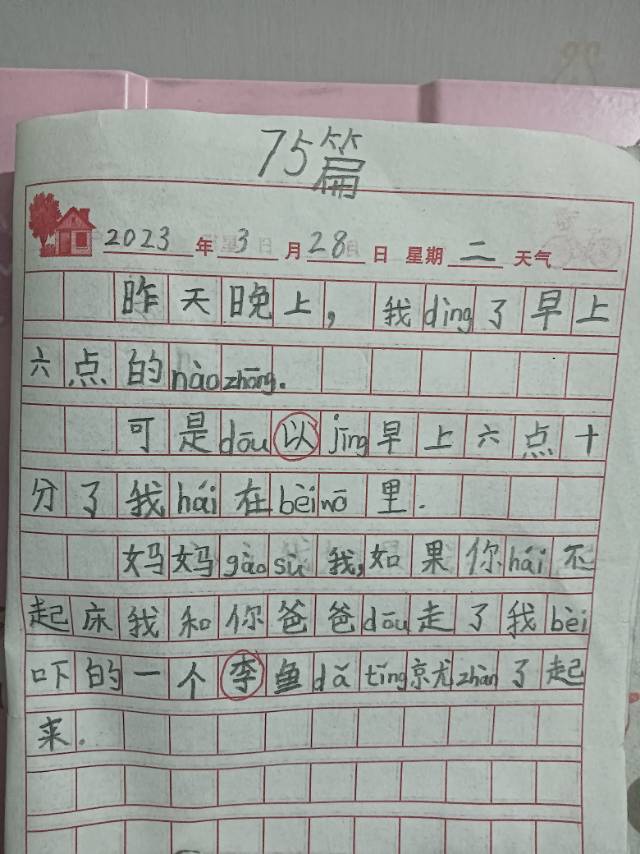 75篇
2023年3月28日 星期二 天气
昨天晚上，我dìng了早上
六点的nàozhōng.
可是dōu以jīng早上六点十
分了我hái在bèiwō里.
妈妈gàosù我,如果你hái不
起床我和你爸爸dōu走了我bèi
吓的一个李鱼dǎtǐng京尤zhàn了起
来.